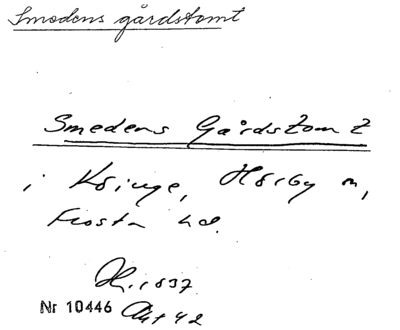 Smedens gårdstomt
Smedens Gårdstomt
i Kringe, Hörby sn,
Frosta hd.
1837
Nr 10446 Akt 42